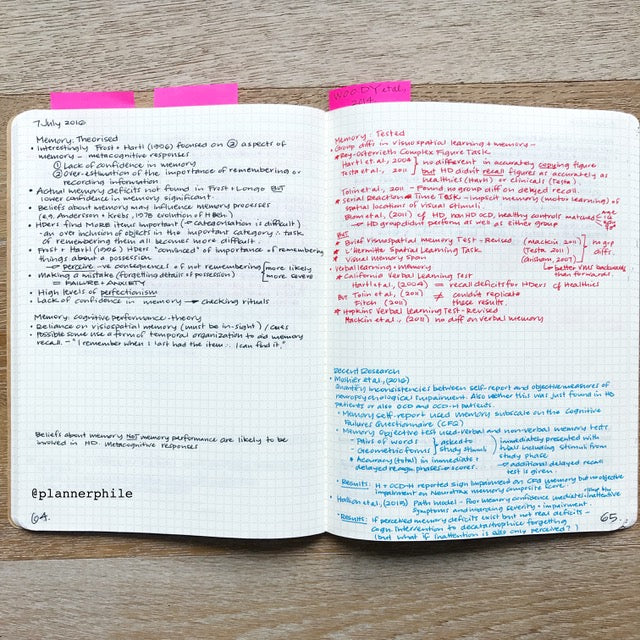 7 July 2016
Memory: Theorised
• Interestingly Frost + Hartl (1996) focused on ② aspects of
memory - metacognitive responses
① Lack of confidence in memory
② Over-estimation of the importance of remembering or
recording information
• Actual memory deficits not found in Frost + Longo BUT
lower confidence in memory significant.
• Beliefs about memory may influence memory processes
(e.g. Anderson + Krebs, 1978 evolution of H Beh.)
• HDers find MORE items important → categorisation is difficult)
- an over inclusion of objects in the important category ∴ task
of remembering them all becomes more difficult.
• Frost + Hartl (1996) HDers "convinced" of importance of remembering
things about a possession
→ perceive -ve consequences of not remembering
• Making a mistake (forgetting detail of possession)
= FAILURE + ANXIETY
more likely
more severe
• High levels of perfectionism
• Lack of confidence in memory → checking rituals
Memory: cognitive performance - theory
• Reliance on visiospatial memory (must be in-sight) / cues
• Possible some use a form of temporal organization to aid memory
recall. - "I remember when I last had the item ∴ I can find it."
Beliefs about memory NOT memory performance are likely to be
involved in HD. Metacognitive responses
@plannerphile
64.
WOODY et al.,
2014
Memory: Tested
• Group diffs in visuospatial learning + memory -
* Rey-Osterrieth Complex Figure Task
Hartl et al., 2004
Testa et al., 2011
no different in accurately copying figure
but HD didn't recall figures as accurately as
healthies (Hartl) or clinicals (Testa)
Tolin et al., 2011 - Found no group diff on delayed recall.
* Serial Reaction Time Task - implicit memory (motor learning) of
spatial locations of visual stimuli
Blom et al., (2011) cf HD, non HD OCD, healthy controls matched
→ HD group didn't perform as well as either group
BUT
* Brief Visuospatial Memory Test - Revised (Mackin, 2011)
* L'Hermitte Spatial Learning Task (Testa 2011)
* Visual Memory Span (Grisham, 2007)
no grp
diffs.
↳ better vms backwards
than forwards.
• Verbal learning + Memory
* California Verbal Learning Test
Hartl et al., (2004) = recall deficits for HDers cf Healthies
But Tolin et al., (2011) ≠ couldn't replicate
Fitch (2011) these results
* Hopkins Verbal Learning Test - Revised
Mackin et al., (2011) no diff on verbal memory
Recent Research
• Moshier et al., (2016)
Quantify inconsistencies between self-report and objective measures of
neuropsychological impairment. Also whether this was just found in HD
patients or also OCD and OCD-H patients.
• Memory self-report used memory subscale on the Cognitive
Failures Questionnaire (CFQ)
• Memory objective test used verbal and non-verbal memory tests
• Pairs of words
• Geometric forms
asked to
study stimuli
immediately presented with
trials including stimuli from
study phase
→ additional delayed recall
test is given.
• Accuracy (total) in immediate +
delayed recogn phases = scores.
• Results: H + OCD-H reported sign impairment on CFQ memory but no objective
impairment on Neurotrax memory composite score.
• Hallion et al., (2015) Path model - Poor memory confidence mediates inattentive
symptoms and hoarding severity + impairment.
• Results: If perceived memory deficits exist but not real deficits -
cogn. intervention to decatastrophize forgetting
(but what if inattention is also only perceived?)
65.